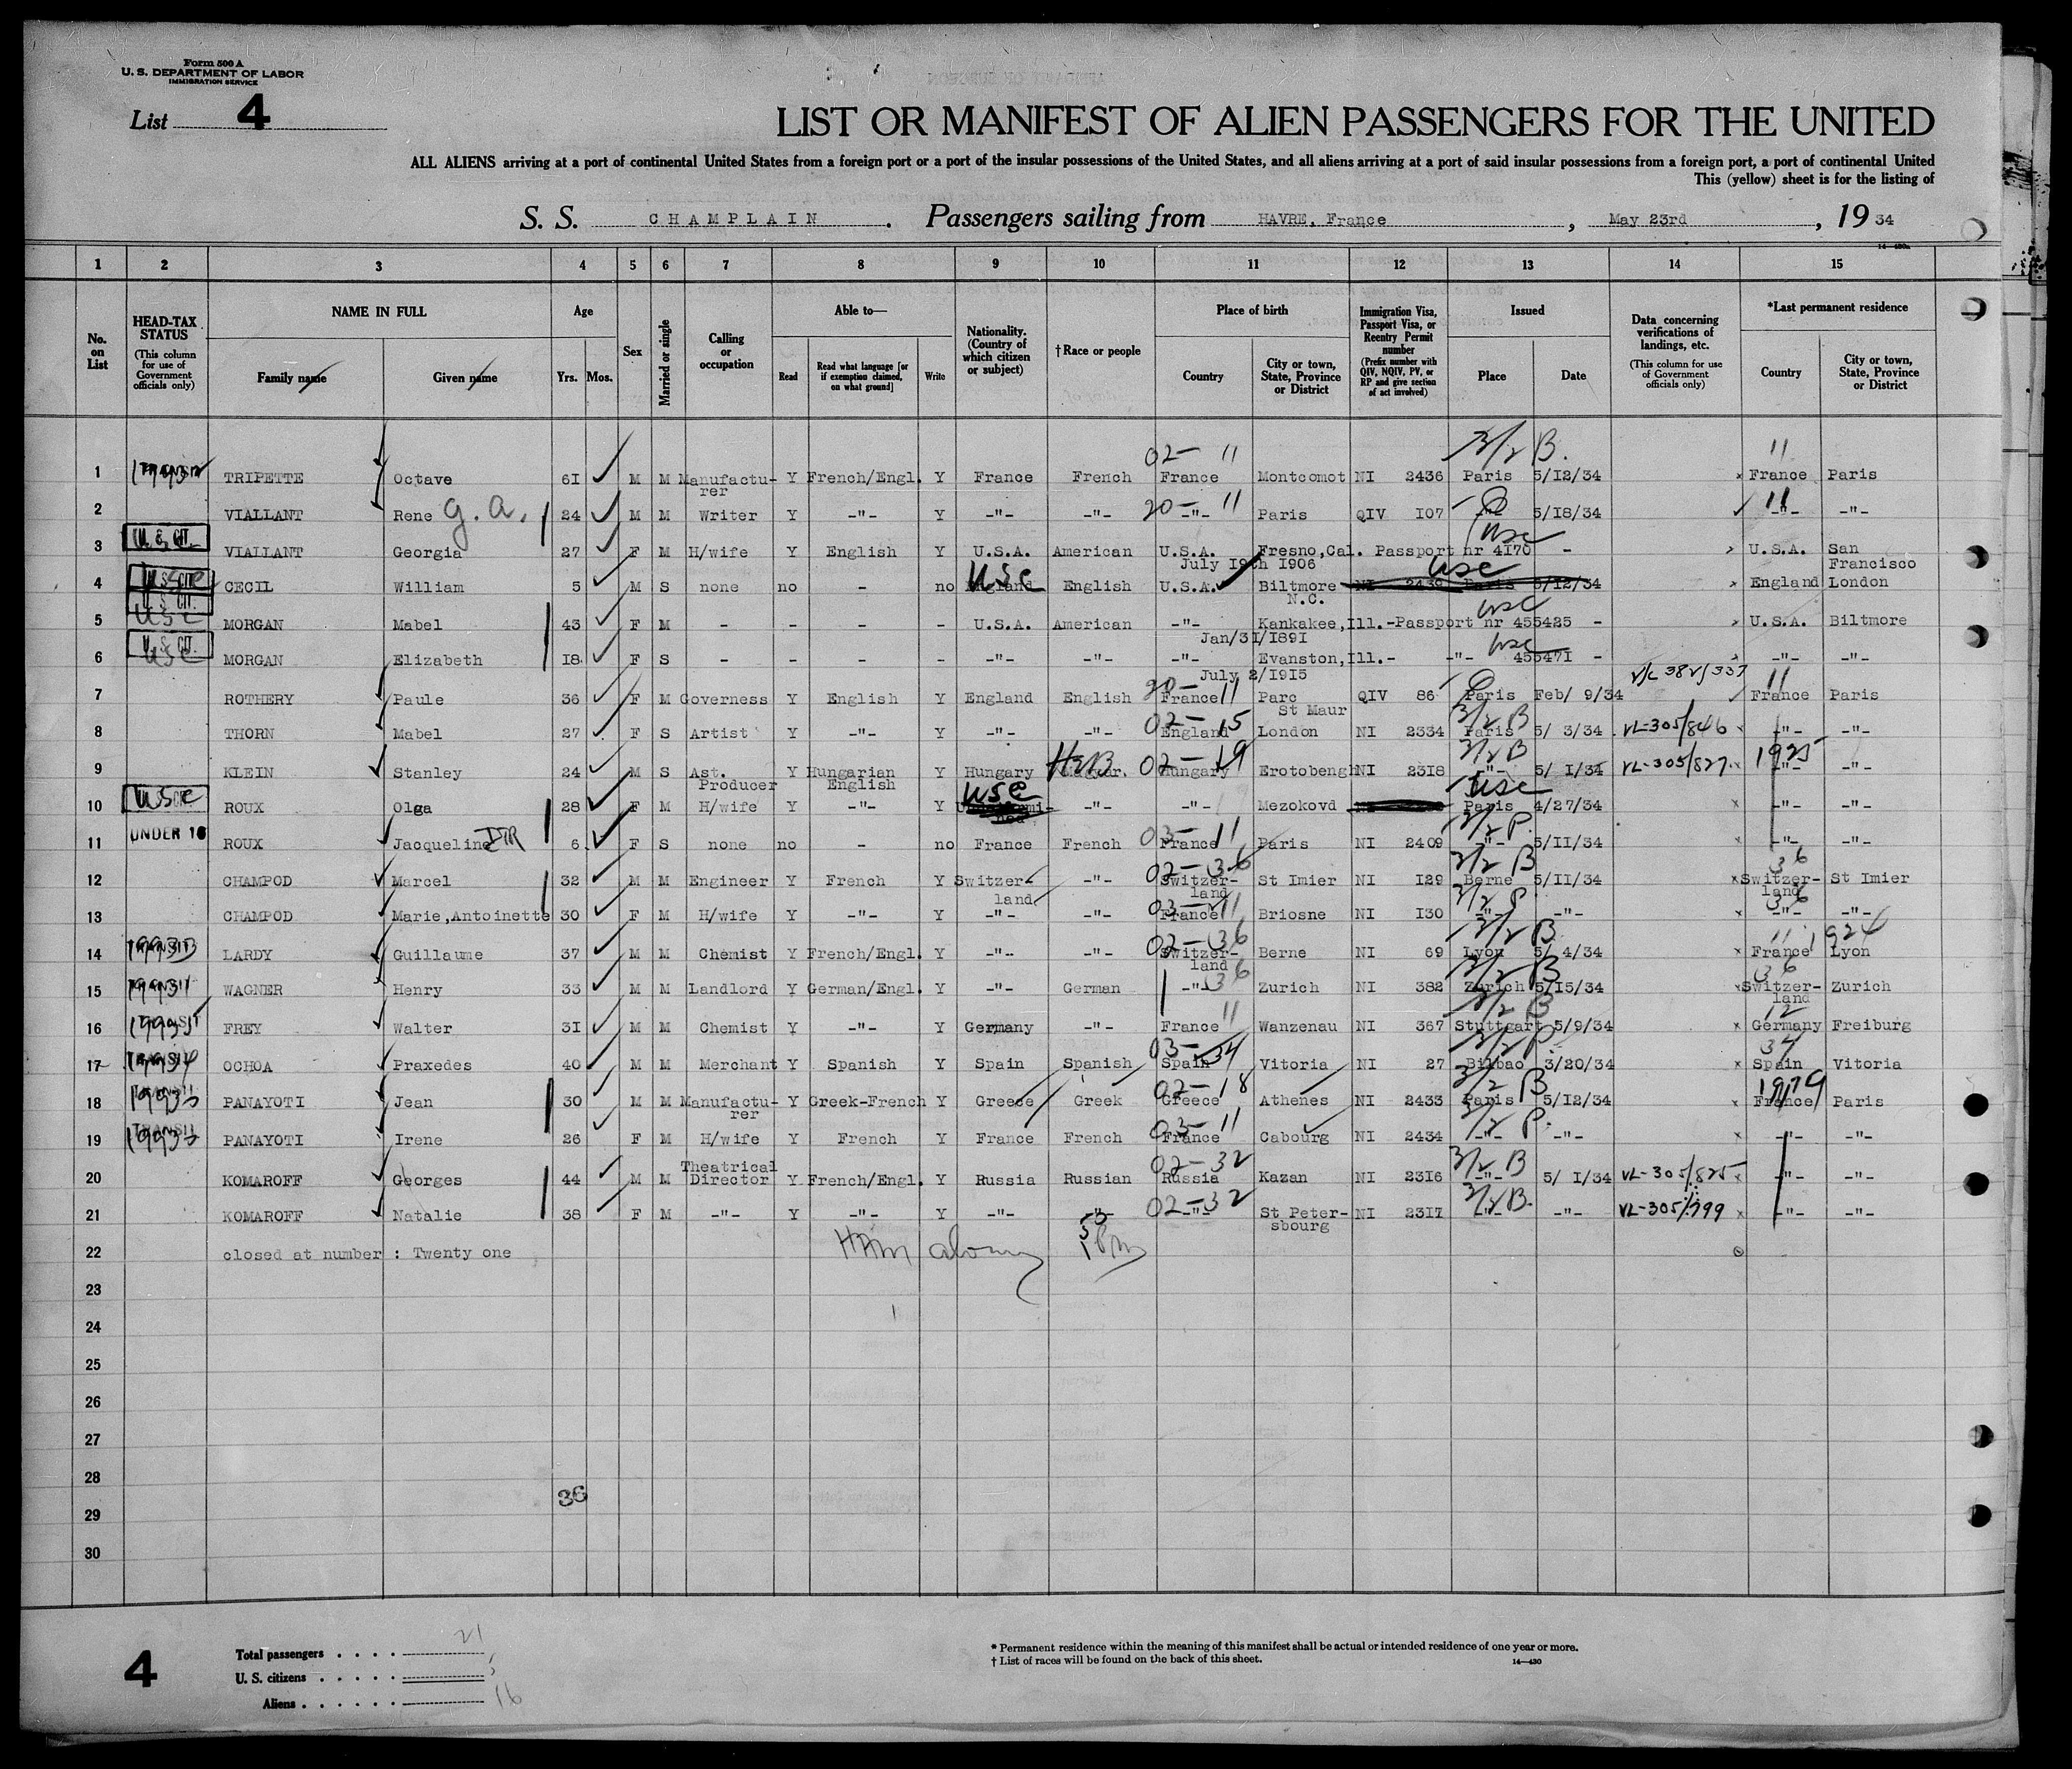 Form 500 A
U. S. DEPARTMENT OF LABOR
IMMIGRATION SERVICE
List 4
LIST OR MANIFEST OF ALIEN PASSENGERS FOR THE UNITED
ALL ALIENS arriving at a port of continental United States from a foreign port or a port of the insular possessions of the United States, and all aliens arriving at a port of said insular possessions from a foreign port, a port of continental United
This (yellow) sheet is for the listing of
S. S. CHAMPLAIN. Passengers sailing from HAVRE, France, May 23rd, 19 34
1 2 3 4 5 6 7 8 9 10 11 12 13 14 15
No. on List
HEAD-TAX STATUS (This column for use of Government officials only)
NAME IN FULL Family name Given name
Age Yrs. Mos.
Sex
Married or single
Calling or occupation
Able to— Read Read what language [or if exemption claimed, on what ground] Write
Nationality. (Country of which citizen or subject)
†Race or people
Place of birth Country City or town, State, Province or District
Immigration Visa, Passport Visa, or Reentry Permit number (Prefix number with QIV, NQIV, PV, or RP and give section of act involved)
Issued Place Date
Data concerning verifications of landings, etc. (This column for use of Government officials only)
*Last permanent residence Country City or town, State, Province or District
3/2 B.
02- 11 11
1 TRIPETTE Octave 61 M M Manufactu- Y French/Engl. Y France French France Montcomot NI 2436 Paris 5/12/34 France Paris
rer
2 VIALLANT Rene G. A. 24 M M Writer Y -"- Y -"- -"- 20- 11 -"- Paris QIV 107 -"- 5/18/34 11 -"- -"-
U. S. CIT. usc
3 VIALLANT Georgia 27 F M H/wife Y English Y U.S.A. American U.S.A. Fresno,Cal. Passport nr 4170 - U.S.A. San
July 19th 1906 Francisco
4 CECIL William 5 M S none no - no England usc English U.S.A. Biltmore NI 2439 Paris 5/12/34 usc England London
N.C.
U. S. CIT. usc
5 MORGAN Mabel 43 F M - - - - U.S.A. American -"- Kankakee,Ill.-Passport nr 455425 - U.S.A. Biltmore
Jan/31/1891
U. S. CIT. usc
6 MORGAN Elizabeth 18 F S - - - - -"- -"- -"- Evanston,Ill.- -"- 455471 - -"- -"-
July 2/1915
7 ROTHERY Paule 36 F M Governess Y English Y England English 20- France 11 Parc QIV 86 Paris Feb/ 9/34 11 France Paris
St Maur
02-15 3/2 B
8 THORN Mabel 27 F S Artist Y -"- Y -"- -"- England London NI 2334 Paris 5/ 3/34 VL-305/846 -"- -"-
3/2 B
9 KLEIN Stanley 24 M S Ast. Y Hungarian Y Hungary 02-19 Hungary Erotobengh NI 2318 -"- 5/ 1/34 VL-305/827 1925 -"- -"-
Producer English
usc usc usc
10 ROUX Olga 28 F M H/wife Y -"- Y -"- -"- Mezokovd Paris 4/27/34 -"- -"-
UNDER 16 03-11 3/2 P.
11 ROUX Jacqueline 6 F S none no - no France French France Paris NI 2409 -"- 5/11/34 -"- -"-
02-36 3/2 B 36
12 CHAMPOD Marcel 32 M M Engineer Y French Y Switzer- -"- Switzer- St Imier NI 129 Berne 5/11/34 Switzer- St Imier
land land land
03-11 3/2 P. 36
13 CHAMPOD Marie,Antoinette 30 F M H/wife Y -"- Y -"- -"- France Briosne NI 130 -"- -"- -"- -"-
02-36 3/2 B 11 1924
14 LARDY Guillaume 37 M M Chemist Y French/Engl. Y -"- -"- Switzer- Berne NI 69 Lyon 5/ 4/34 France Lyon
land
36 3/2 B 36
15 WAGNER Henry 33 M M Landlord Y German/Engl. Y -"- German -"- Zurich NI 382 Zurich 5/15/34 Switzer- Zurich
land
11 3/2 B 12
16 FREY Walter 31 M M Chemist Y -"- Y Germany -"- France Wanzenau NI 367 Stuttgart 5/9/34 Germany Freiburg
03-34 3/2 P. 34
17 OCHOA Praxedes 40 M M Merchant Y Spanish Y Spain Spanish Spain Vitoria NI 27 Bilbao 3/20/34 Spain Vitoria
02-18 3/2 B
18 PANAYOTI Jean 30 M M Manufactu- Y Greek-French Y Greece Greek Greece Athenes NI 2433 Paris 5/12/34 France Paris
rer
03-11 3/2 P.
19 PANAYOTI Irene 26 F M H/wife Y French Y France French France Cabourg NI 2434 -"- -"- -"- -"-
Theatrical 02-32 3/2 B
20 KOMAROFF Georges 44 M M Director Y French/Engl. Y Russia Russian Russia Kazan NI 2316 -"- 5/ 1/34 VL-305/825 -"- -"-
02-32 3/2 B.
21 KOMAROFF Natalie 38 F M -"- Y -"- Y -"- -"- -"- St Peter- NI 2317 -"- -"- VL-305/799 -"- -"-
sbourg
22 closed at number : Twenty one
23
24
25
26
27
28
36
29
30
4
Total passengers 21
U. S. citizens 5
Aliens 16
* Permanent residence within the meaning of this manifest shall be actual or intended residence of one year or more.
† List of races will be found on the back of this sheet. 14—430